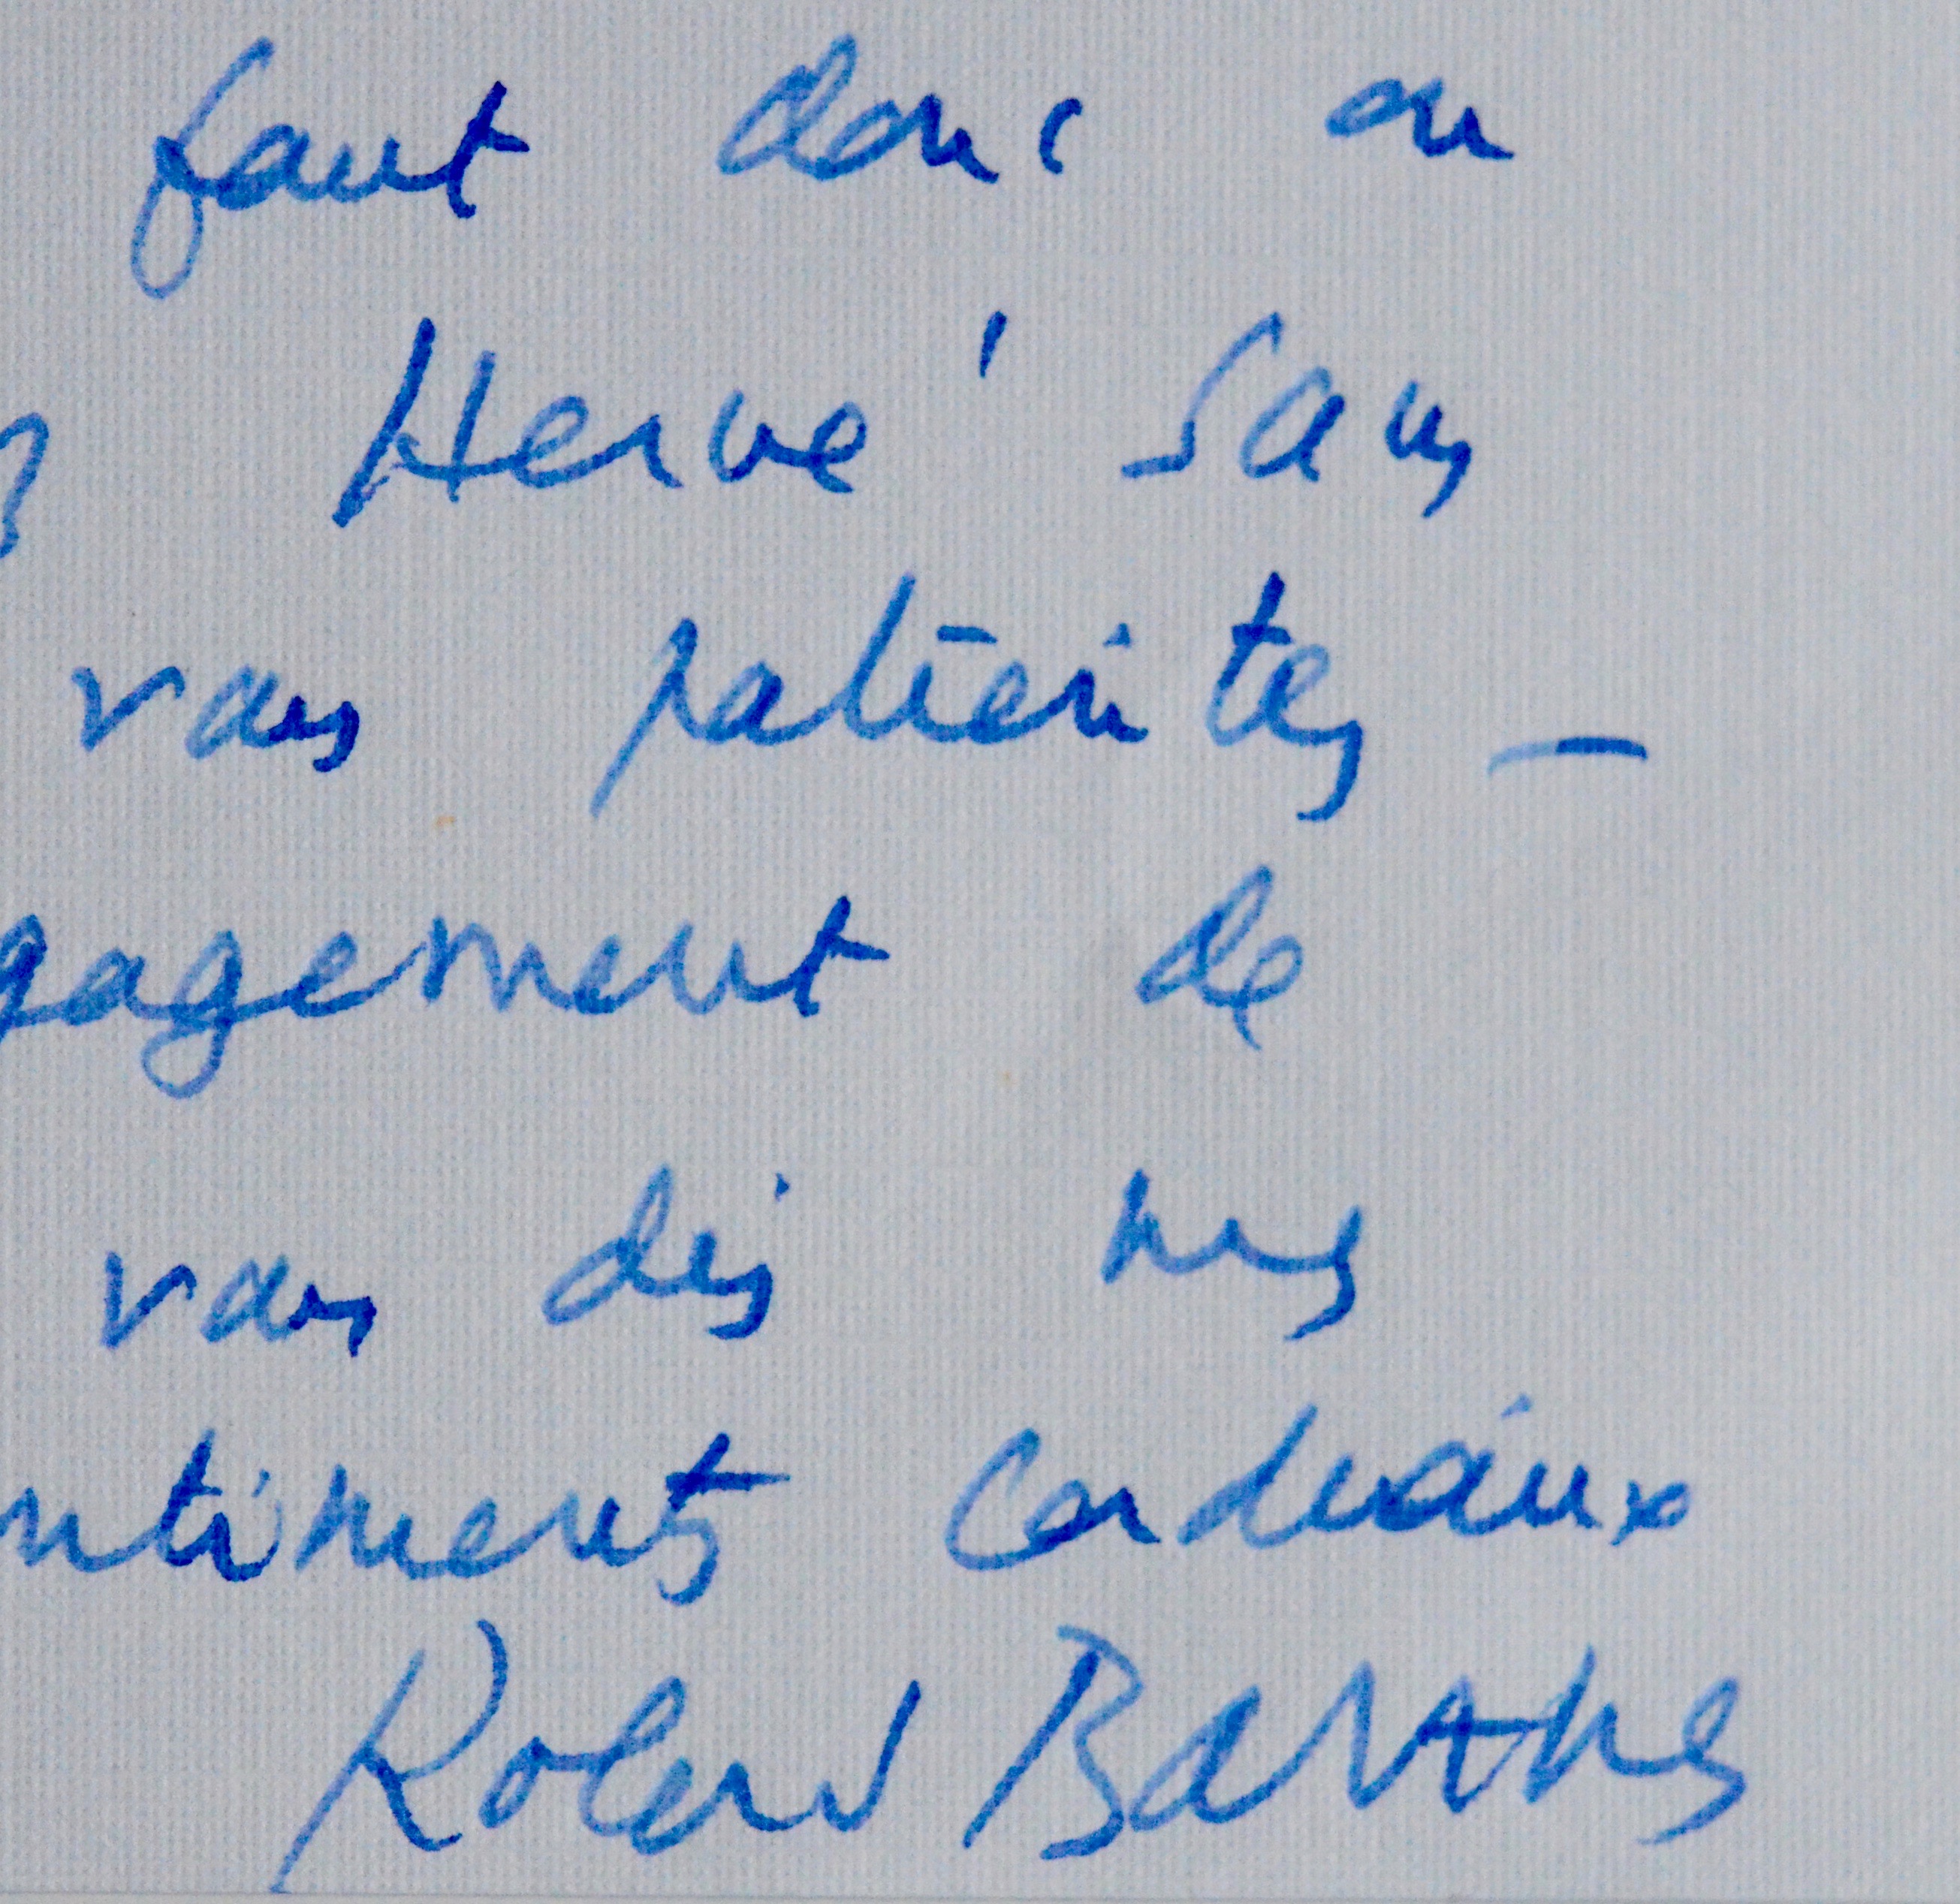 faut donc ou
Hervé sans
vous patientes —
gagement de
vous dis mes
ntiments cordiaux
Roland Barthes